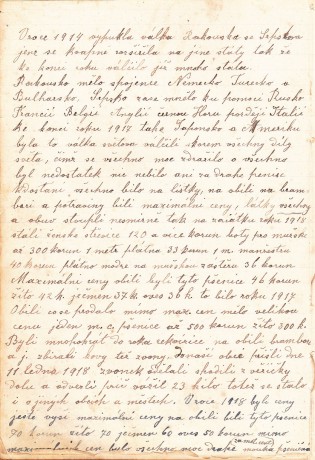 V roce 1914 vypukla válka Rakouska se Srbskem
jenz se brzo rozšírila na jene státy tak že
ke konci roku válčilo již mnoho států
Rakousko mělo spojence Německo Turecko a
Bulharsko. Srbsko zase mnělo ku pomoci Rusko
Francii Belgii Anglii černou Horu později Italii
ke konci roku 1917 také Japonsko a Ameriku
byla to válka světová válčili skorem všechny díly
světa, čímž se všechno moc zdražilo a všechno
byl nedostatek nic nebilo ani za drahé peníze
k dostání, všechno bilo na lístky, na obilí na bram-
bori a potraviny bili maximalní ceny, látky všechny
a obuv stoupli nesmírně tak na začátku roku 1918
stáli ženské střevíce 120 a více korun boty pro mužské
až 300 korun 1 metr plátna 33 korun 1 m. manšestru
40 korun plátno modré na mužskou zástěru 36 korun
Maximalní ceny obilí byli tyto pšenice 46 korun
žito 42 k. ječmen 37 k. oves 36 k. to bilo roku 1917
Obilí se prodalo mimo max. cen mělo velikou
cenu jeden m. c. pšenice až 500 korun žito 300 k.
Byli mnohokrát do roka rekvizice na obilí brambor
a j. zbírali kovy též zvony. Z naší obce přišli dne
11 ledna 1918 zvonek odělali shodili z vížičky
dolu a odvezli prič vážil 23 kilo též se stalo
i v jiných obcích a městech. V roce 1918 byli ceny
jesto výší maximalní ceny na obilí bili tyto pšenice
70 korun žito 70 ječmen 60 oves 50 korun mimo
cen bilo všechno moc drahé mouka pšeničná